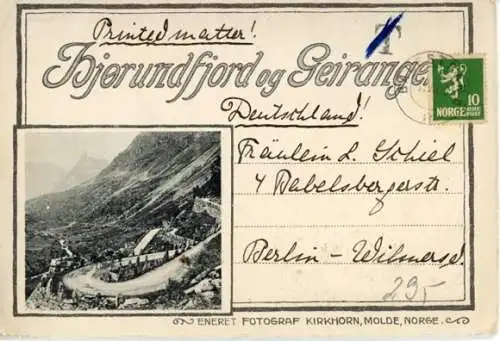 Printed matter!
T
Hjørundfjord og Geiranger
NORGE 10
Deutschland!
Fräulein L. Schiel
4 Babelsbergerstr.
Berlin - Wilmersd.
29,-
ENERET FOTOGRAF KIRKHORN, MOLDE, NORGE.